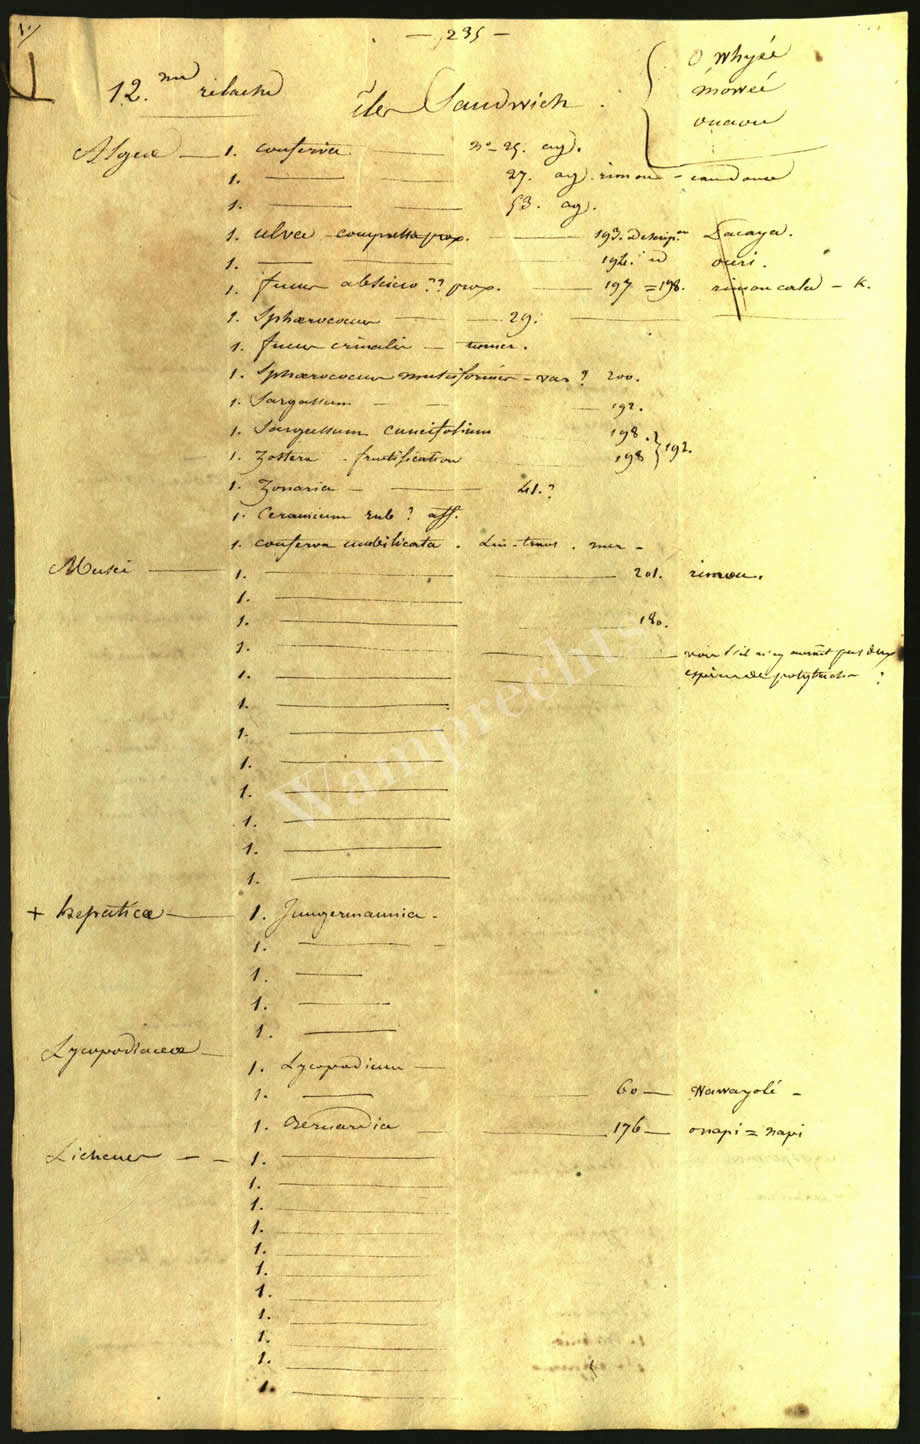 — 235 —
12.me relache
îles Sandwich.
O whyée
mowée
Algeæ — 1. conferva — nº 25. ag.
1. — 27. ag. rimou -
1. — 53. ag.
1. ulva compressa prox. — 193. descrip.on
1. — 194. id
1. fucus ?? prox. — 197 = 198. — K.
1. Sphærococcus — 29.
1. fucus crinalis — turner.
1. Sphærococcus musciformis - var? 200.
1. Sargassum — 192.
1. Sargassum cuneifolium 198.
1. Zostera . fructification 198 } 192.
1. Zonaria — 41.?
1. Ceramium rub? aff.
1. conferva umbilicata .
Musci — 1. — 201. rimou.
1. —
1. — 180.
1. — voir s'il n'y aurait pas deux
1. — espèces de polytrichs ?
1. —
1. —
1. —
1. —
1. —
1. —
1. —
+ hepaticæ — 1. Jungermannia -
1. —
1. —
1. —
1. —
Lycopodiaceæ —
1. Lycopodium —
1. — 60 — Wawayolé -
1. Bernardia — 176 — onapi = napi
Lichenes — — 1. —
1. —
1. —
1. —
1. —
1. —
1. —
1. —
1. —
1. —
1. —
Wamprechts